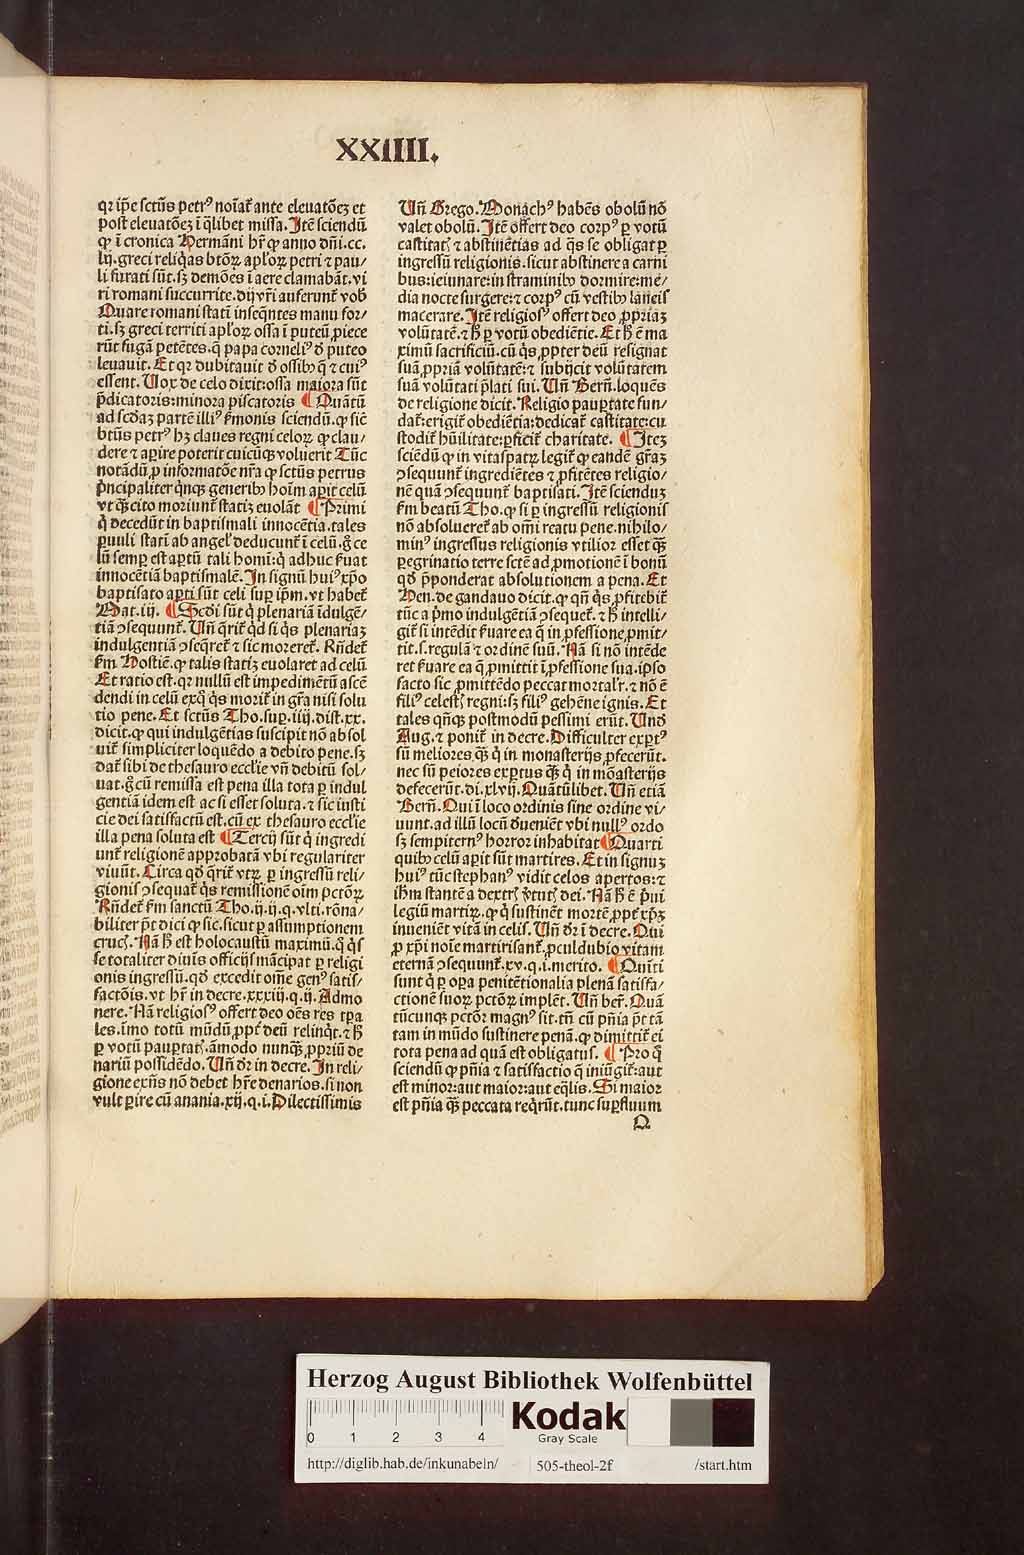 XXIIII.
qꝛ ip̄e sctūs petrꝰ noīat̄ ante eleuatōeꝫ et
post eleuatōeꝫ ī q̄libet missa. Itē sciendū
ꝙ ī cronica Hermāni hr̄ ꝙ anno dn̄i.cc.
lij.greci reliq̄as btōꝝ apl'oꝝ petri ⁊ pau/
li furati sūt.sꝫ demōes ī aere clamabāt.vi
ri romani succurrite.dij vr̄i auferunt̄ vob̄
Quare romani statī inseq̄ntes manu for/
ti.sꝫ greci territi apl'oꝝ ossa ī puteū ꝓiece
rūt fugā petētes.q̄ papa corneliꝰ d̄ puteo
leuauit. Et qꝛ dubitauit d̄ ossibꝰ q̄ ⁊ cuiꝰ
essent. Uox de celo dixit:ossa maiora sūt
p̄dicatoris:minora piscatoris ¶ Quātū
ad scd̄aꝫ partē illiꝰ ẜmonis sciendū.ꝙ sic̄
btūs petrꝰ hꝫ claues regni celoꝝ ꝙ clau/
dere ⁊ aꝑire poterit cuicūqꝫ voluerit Tūc
notādū ꝓ informatōe nr̄a ꝙ sctūs petrus
pͥncipaliter qͥnqꝫ generibꝰ hoīm aꝑit celū
vt q̄ꝫ cito moriunt̄ statiꝫ euolāt ¶ Primi
qͥ decedūt in baptismali innocētia.tales
ꝑuuli statī ab angel' deducunt̄ ī celū.g̊ ce
lū semꝑ est aꝑtū tali homī:qͥ adhuc ẜuat
innocētiā baptismalē. In signū huiꝰ xp̄o
baptisato aꝑti sūt celi suꝑ ip̄m.vt habet̄
Mat.iij. ¶ Scd̄i sūt qͥ plenariā īdulgē/
tiā ↄsequunt̄. Un̄ q̄rit̄ qͥd si qͥs plenariaꝫ
indulgentiā ↄseq̄ret̄ ⁊ sic moreret̄. Rn̄det̄
ẜm Hostiē.ꝙ talis statiꝫ euolaret ad celū
Et ratio est.qꝛ nullū est impedimētū ascē
dendi in celū exqͦ qͥs morit̄ in gr̄a nisi solu
tio pene. Et sctūs Tho.suꝑ.iiij.dist.xx.
dicit.ꝙ qui indulgētias suscipit nō absol
uit̄ simpliciter loquēdo a debito pene.sꝫ
dat̄ sibi de thesauro eccl'ie vn̄ debitū sol/
uat.g̊ cū remissa est pena illa tota ꝑ indul
gentiā idem est ac si esset soluta.⁊ sic iusti
cie dei satisfactū est.cū ex thesauro eccl'ie
illa pena soluta est ¶ Tercij sūt qͥ ingredi
unt̄ religionē approbatā vbi regulariter
viuūt. Circa qd̄ q̄rit̄ vtꝝ ꝑ ingressū reli/
gionis ↄsequat̄ qͥs remissionē oīm pctōꝝ
Rn̄det̄ ẜm sanctū Tho.ij.ij.q.vlti.rōna/
biliter p̄t dici ꝙ sic.sicut ꝑ assumptionem
crucꝭ. Nā h̄ est holocaustū maximū.qͦ qͥs
se totaliter diuīs officijs mācipat ꝑ religi
onis ingressū.qd̄ excedit om̄e genꝰ satis/
factōis.vt hr̄ in decre.xxxiij.q.ij. Admo
nere. Nā religiosꝰ offert deo oēs res tꝑa
les.īmo totū mūdū ꝓpt̄ deū relinqͥt.⁊ h̄
ꝑ votū pauꝑtatꝭ.āmodo nunqꝫ ꝓpriū de
nariū possidēdo. Un̄ dr̄ in decre. In reli/
gione exn̄s nō debet hr̄e denarios.si non
vult ꝑire cū anania.xij.q.i. Dilectissimis
Un̄ Grego. Monachꝰ habēs obolū nō
valet obolū. Itē offert deo corpꝰ ꝑ votū
castitatꝭ ⁊ abstinētias ad q̄s se obligat ꝑ
ingressū religionis.sicut abstinere a carni
bus:ieiunare:in straminibꝰ dormire:me/
dia nocte surgere:⁊ corpꝰ cū vestibꝰ laneis
macerare. Itē religiosꝰ offert deo ꝓpriaꝫ
volūtatē.⁊ h̄ ꝑ votū obediētie. Et h̄ ē ma
ximū sacrificiū.cū qͥs ꝓpter deū resignat
suā ꝓpriā volūtatē:⁊ subijcit volūtatem
suā volūtati p̄lati sui. Un̄ Bern̄.loquēs
de religione dicit. Religio pauꝑtate fun/
dat̄:erigit̄ obediētia:dedicat̄ castitate:cu
stodit̄ hūilitate:ꝑficit̄ charitate. ¶ Iteꝫ
sciēdū ꝙ in vitaspatꝝ legit̄ ꝙ eandē gr̄aꝫ
ↄsequunt̄ ingrediētes ⁊ ꝓfitētes religio/
nē quā ↄsequunt̄ baptisati. Itē sciendum
ẜm beatū Tho.ꝙ si ꝑ ingressū religionis
nō absolueret̄ ab om̄i reatu pene.nihilo/
minꝰ ingressus religionis vtilior esset q̄ꝫ
ꝑegrinatio terre sctē ad ꝓmotionē ī bonū
qd̄ p̄ponderat absolutionem a pena. Et
Hen.de gandauo dicit.ꝙ qn̄ qͥs ꝓfitebit̄
tūc a pͥmo indulgētiā ↄsequet̄.⁊ h̄ intelli/
git̄ si intēdit ẜuare ea q̄ in ꝓfessione ꝓmit/
tit.s.regulā ⁊ ordinē suū. Nā si nō intēde
ret ẜuare ea q̄ ꝓmittit ī ꝓfessione sua.ipso
facto sic ꝓmittēdo peccat mortalr̄.⁊ nō ē
filiꝰ celestꝭ regni:sꝫ filiꝰ gehēne ignis. Et
tales qn̄qꝫ postmodū pessimi erūt. Und̄
Aug.⁊ ponit̄ in decre. Difficulter exꝑtꝰ
sū meliores q̄ꝫ qͥ in monasterijs ꝓfecerūt.
nec sū peiores exꝑtus q̄ꝫ qͥ in mōasterijs
defecerūt.di.xlvij. Quātūlibet. Un̄ etiā
Bern̄. Qui ī loco ordinis sine ordine vi/
uunt.ad illū locū d̄ueniēt vbi nullꝰ ordo
sꝫ sempiternꝰ horror inhabitat ¶ Quarti
quibꝰ celū aꝑit sūt martires. Et in signuꝫ
huiꝰ tūc stephanꝰ vidit celos apertos:⁊
ih̄m stantē a dextrꝭ v̄tutꝭ dei. Nā h̄ ē pͥui
legiū martiꝝ.ꝙ qͥ sustinēt mortē ꝓpt̄ xp̄ꝫ
inueniēt vitā in celis. Un̄ dr̄ ī decre. Qui
ꝓ xp̄i noīe martirisant̄.ꝓculdubio vitam
eternā ↄsequunt̄.xv.q.i.merito. ¶ Quīti
sunt qͥ ꝑ oꝑa penitētionalia plenā satisfa/
ctionē suoꝝ pctōꝝ implēt. Un̄ ber̄. Quā
tūcunqꝫ pctōr magnꝰ sit.tn̄ cū pn̄ia p̄t tā
tam in mūdo sustinere penā.ꝙ dimittit̄ ei
tota pena ad quā est obligatus. ¶ Pro qͦ
sciendū ꝙ pn̄ia ⁊ satisfactio q̄ iniūgit̄:aut
est minor:aut maior:aut eq̄lis. Si maior
est pn̄ia q̄ꝫ peccata reqͥrūt.tunc suꝑfluum
Q
Herzog August Bibliothek Wolfenbüttel
0 1 2 3 4
Kodak
Gray Scale
http://diglib.hab.de/inkunabeln/ 505-theol-2f /start.htm